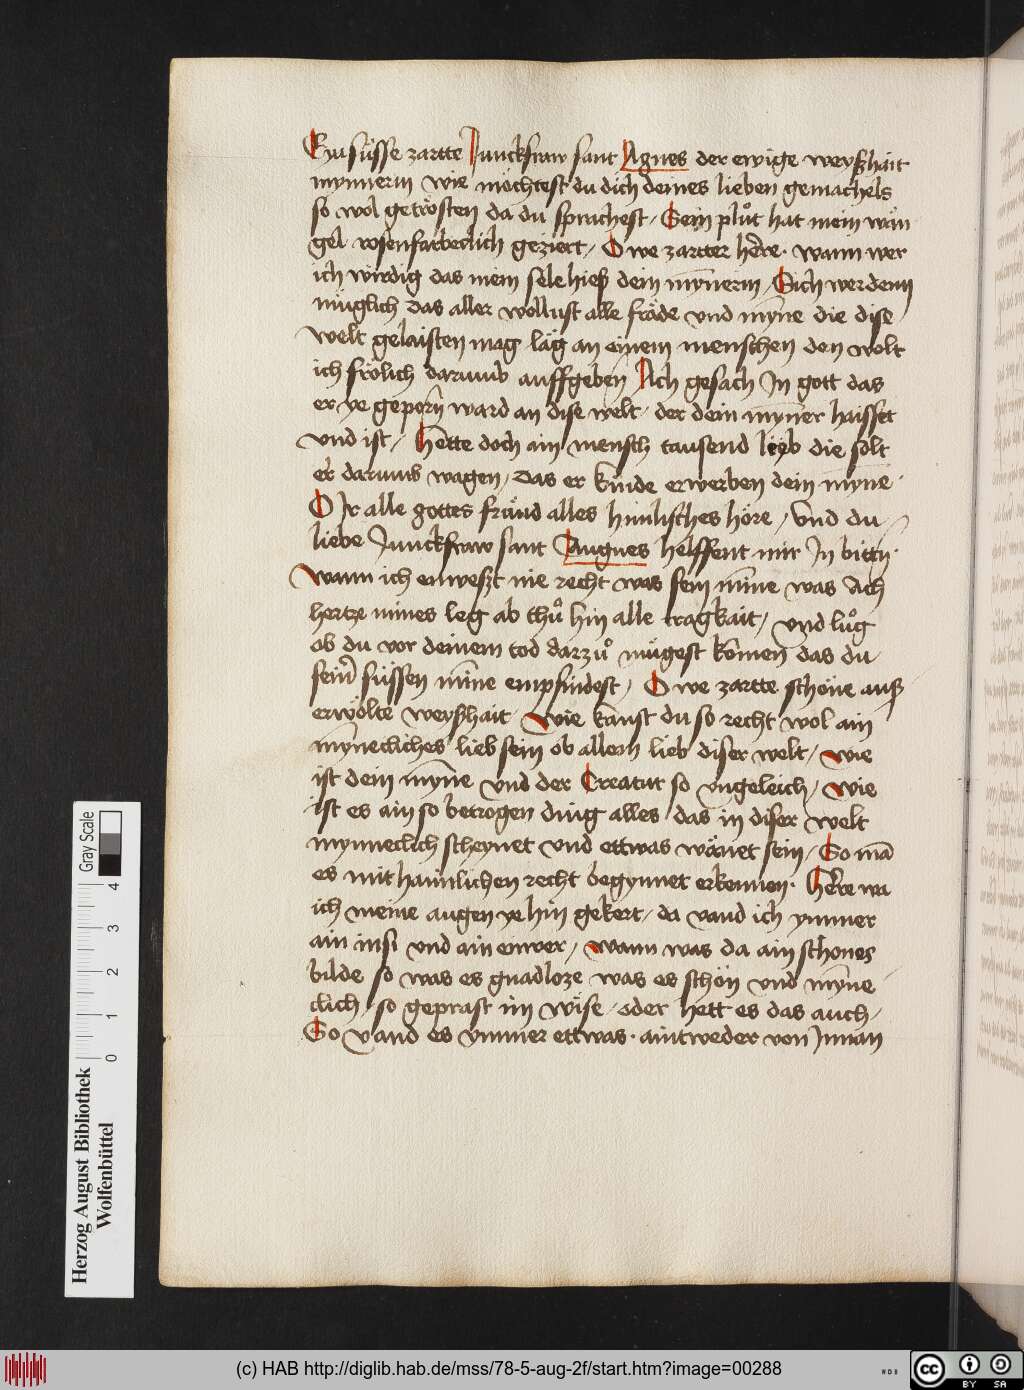 Eya süsse zartte Junckfraw sant Agnes der ewige weyßhait
mynnerin wie möchtest du dich deines lieben gemachels
so wol getrösten da du sprachest / Sein plůt hat mein wän
gel rosenfarbeclich geziert / O we zartter here · wann wer
ich wirdig das mein sele hieß dein mynnerin / Sich wer denn
müglich das aller wollust alle fräde vnd myne die dise
welt gelaisten mag läg an einem menschen den wolt
ich frölich darumb auffgeben Ach gesach Jn gott das
er ye geporn ward an dise welt / der dein mynner haisset
vnd ist / Hette doch ain mensch tausend lieb die solt
er darumb wagen / das er kunde erwerben dein myne ·
O Jr alle gottes fränd alles himlisches höre / Vnd du
liebe Junckfraw sant Augnes helffent mir Jn bitten ·
wann ich enweszt nie recht was sein mine was Ach
hertze mines leg ab thů hin alle tragkait / vnd lůg
ob du vor deinem tod darzů mügest komen das du
seiner süssen mine empfindest / O we zartte schöne auß
erwölte weyßhait wie kanst du so recht wol ain
myneclichs lieb sein ob allem lieb diser welt / wie
ist dein myne vnd der Creatur so vngeleich / wie
ist es ain so betrogen ding alles das in diser welt
mynneclich scheynet vnd ettwas wänet sein / So man
es mit haimlichen recht begynnet erkennen · Here wa
ich meine augen ye hin gekert / da vand ich ymmer
ain insi vnd ain enwer / wann was da ain schones
bilde so was es gnadloze was es schön vnd myne
clich / so geprast im wise / oder hett es das auch /
So vand es ymmer ettwas · aintweder von Jnnan
Herzog August Bibliothek
Wolfenbüttel
0 1 2 3 4 Gray Scale
(c) HAB http://diglib.hab.de/mss/78-5-aug-2f/start.htm?image=00288
WDB
cc BY SA